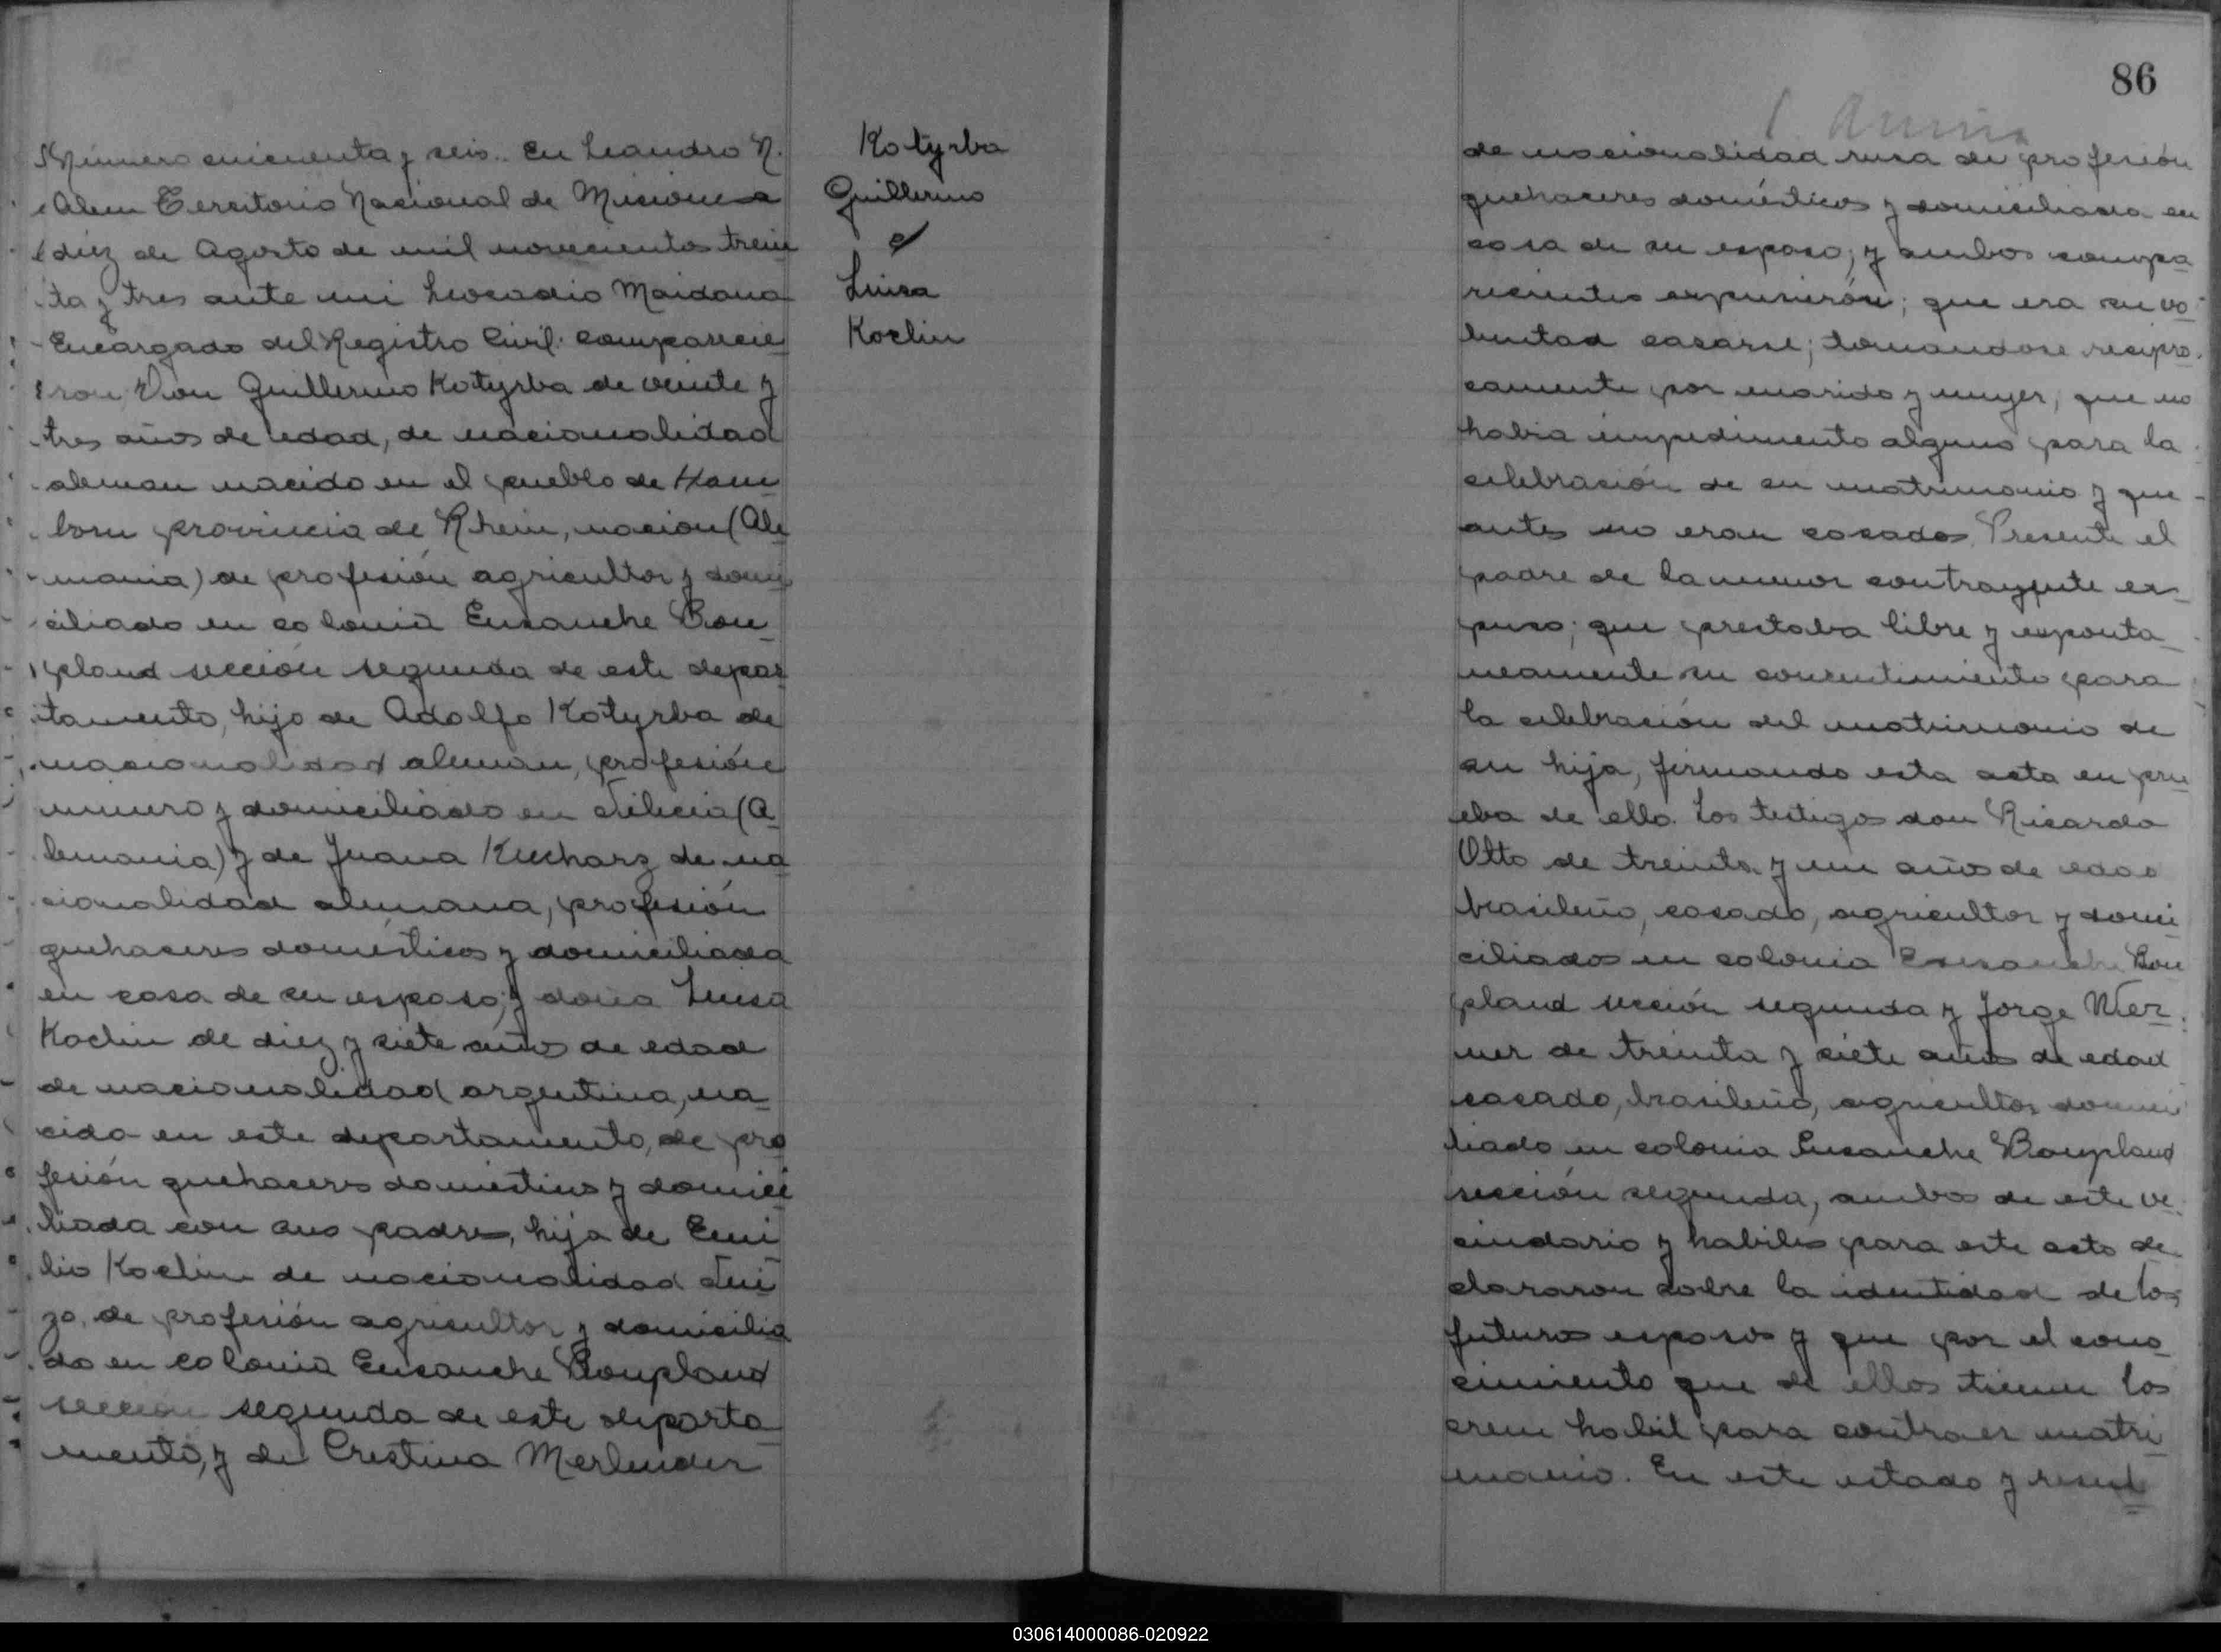 Número cincuenta y seis. En Leandro N.
Alem Territorio Nacional de Misiones a
diéz de Agosto de mil novecientos trein
ta y tres ante mi Leocadio Maidana
Encargado del Registro Civil: comparecie
ron Don Guillermo Kotyrba de veinte y
tres años de edad, de nacionalidad
aleman nacido en el pueblo de Ham
born provincia de Rhein, nacion (Ale
mania) de profesión agricultor y domi
ciliado en colonia Ensanche Bon
pland sección segunda de este depar
tamento, hijo de Adolfo Kotyrba de
nacionalidad aleman, profesión
minero y domiciliado en Silecia (A
lemania) y de Juana Kucharz de na
cionalidad alemana, profesión
quehaceres domésticos y domiciliada
en casa de su esposo; y doña Luisa
Koclin de diez y siete años de edad
de nacionalidad argentina, na
cida en este departamento, de pro
fesión quehaceres domésticos y domici
liada con sus padres, hija de Emi
lio Koclin de nacionalidad Sui
zo, de profesión agricultor y domicilia
do en colonia Ensanche Bonpland
sección segunda de este departa
mento, y de Crestina Merlender
Kotyrba
Guillermo
e
Luisa
Koclin
86
de nacionalidad rusa de profesión
quehaceres domésticos y domiciliada en
casa de su esposo; y ambos compa
recientes expusierón; que era su vo
luntad casarse; tomandose recipro
camente por marido y mujer, que no
habia impedimento alguno para la
celebración de su matrimonio y que
antes no eran casados. Presente el
padre de la menor contrayente ex
puso; que prestaba libre y esponta
neamente su consentimiento para
la celebración del matrimonio de
su hija, firmando esta acta en pru
eba de ello. Los testigos don Ricardo
Otto de treinta y un años de edad
brasileño, casado, agricultor y domi
ciliados en colonia Ensanche Bon
pland sección segunda y Jorge Wer
ner de treinta y siete años de edad
casado, brasileño, agricultor domici
liado en colonia Ensanche Bonpland
sección segunda, ambos de este ve
cindario y habiles para este acto de
clararon sobre la identidad de los
futuros esposos y que por el cono
cimiento que de ellos tienen los
creen habil para contraer matri
monio. En este estado y resul
030614000086-020922